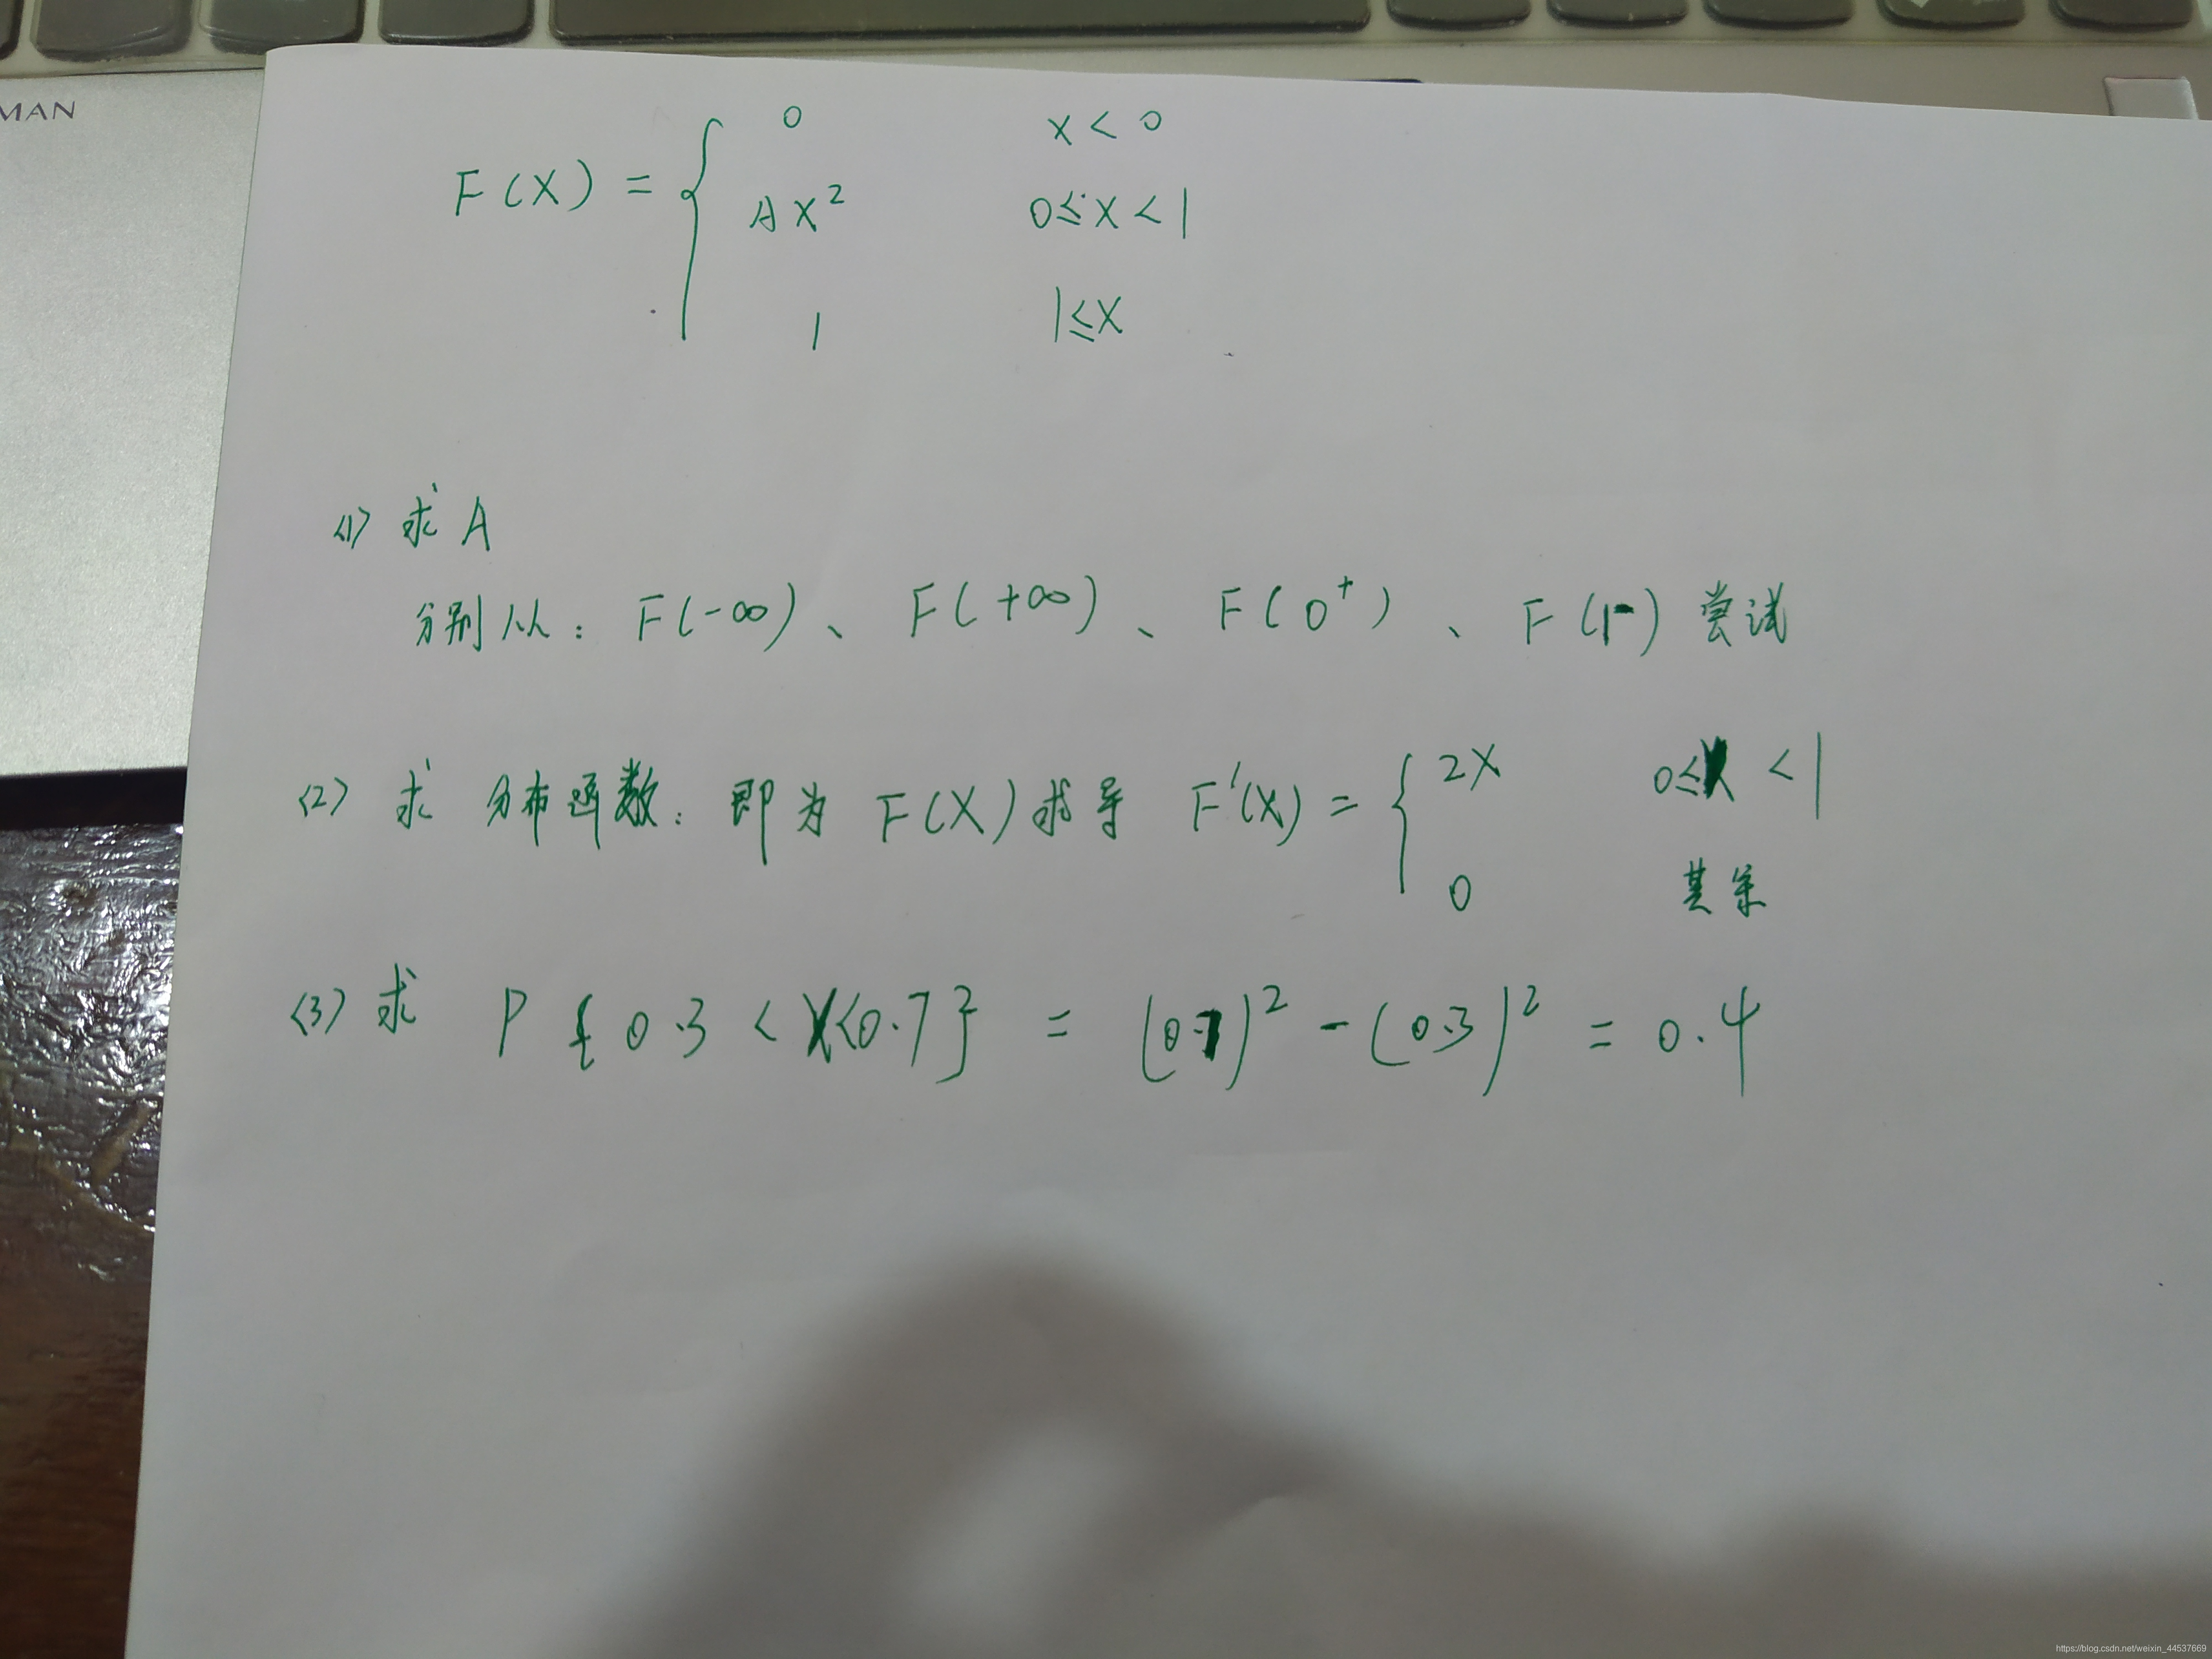 MAN
F(X) = { 0 X < 0
AX² 0 ≤ X < 1
1 1 ≤ X
<1> 求 A
分别从: F(-∞)、F(+∞)、F(0⁺)、F(1-) 尝试
<2> 求 分布函数: 即为 F(X) 求导 F'(X) = { 2X 0 ≤ X < 1
0 其余
<3> 求 P { 0.3 < X < 0.7 } = (0.7)² - (0.3)² = 0.4
https://blog.csdn.net/weixin_44537669